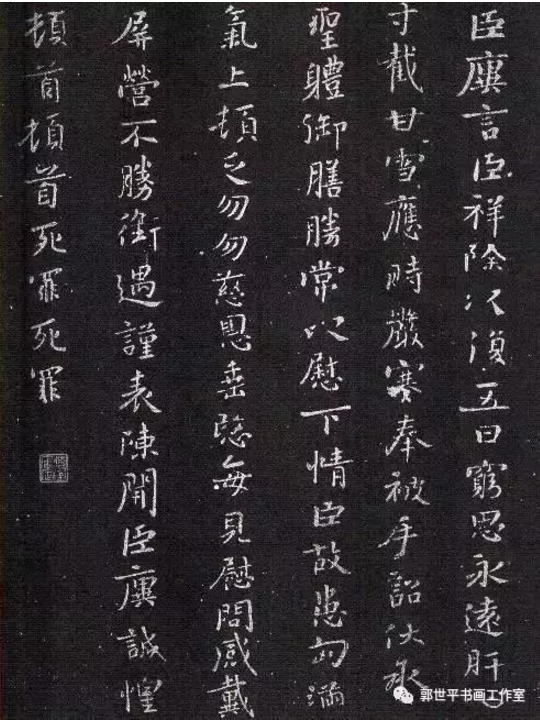 臣廙言臣祥除以復五日窮思永遠肝心
寸截甘雪應時嚴寒奉被手詔伏承
聖體御膳勝常以慰下情臣故患匈滿
氣上頓乏勿勿慈恩垂愍每見慰問感戴
屏營不勝銜遇謹表陳聞臣廙誠惶
頓首頓首死罪死罪
郭世平书画工作室